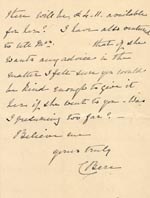 there will be, d L. H. available
for her? I have also ventured
to tell Mrs that if she
wants any advice in the
matter I felt sure you would
be kind enough to give it
her if she went to you – Was
I presuming too far? –
Believe me
yours truly
C Bere